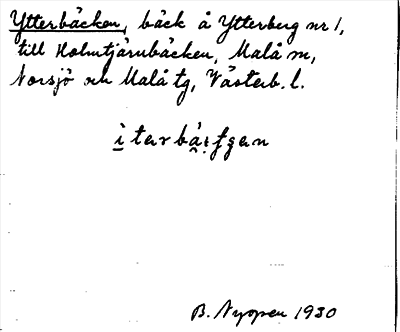 Ytterbäcken, bäck å Ytterberg nr 1,
till Holmtjärnbäcken, Malå sn,
Norsjö och Malå tg, Västerb. l.
B. Nyopen 1930